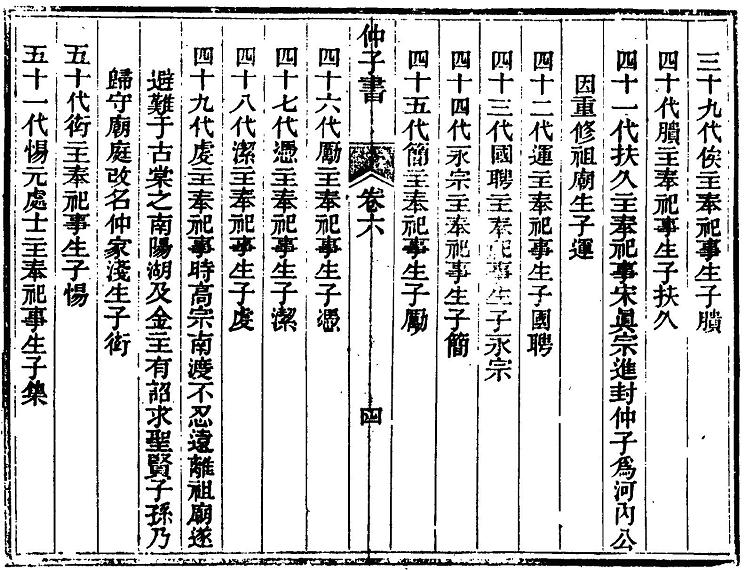 三十九代俟主奉祀事生子膭
四十代膭主奉祀事生子扶久
四十一代扶久主奉祀事宋眞宗進封仲子爲河內公
因重修祖廟生子運
四十二代運主奉祀事生子國聘
四十三代國聘主奉祀事生子永宗
四十四代永宗主奉祀事生子簡
四十五代簡主奉祀事生子勵
仲子書 卷六 四
四十六代勵主奉祀事生子憑
四十七代憑主奉祀事生子潔
四十八代潔主奉祀事生子虔
四十九代虔主奉祀事時高宗南渡不忍遠離祖廟遂
避難于古棠之南陽湖及金主有詔求聖賢子孫乃
歸守廟庭改名仲家淺生子銜
五十代銜主奉祀事生子惕
五十一代惕元處士主奉祀事生子集